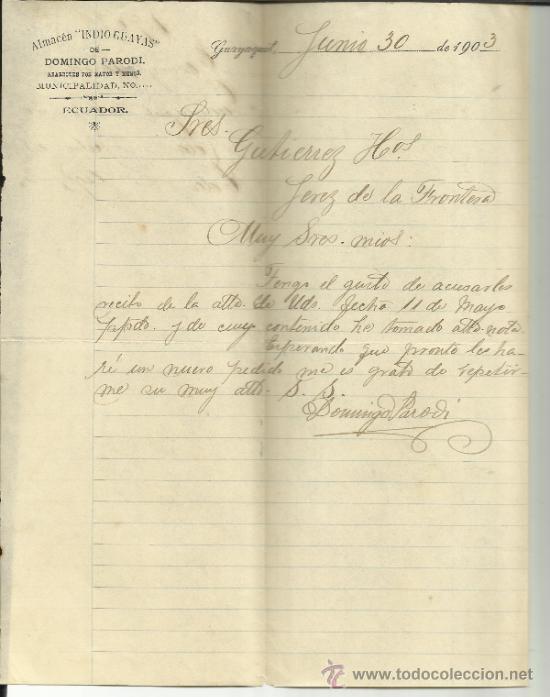 Almacén "INDIO GUAYAS"
DE
DOMINGO PARODI.
ABARROTES POR MAYOR Y MENOR.
MUNICIPALIDAD, NO.....
ECUADOR.
Guayaquil, Junio 30 de 1903
Sres.
Gutierrez Hos.
Jerez de la Frontera
Muy Sres. mios:
Tengo el gusto de acusarles
recibo de la atta. de Uds. fecha 11 de Mayo
ppdo. y de cuyo contenido he tomado atta. nota.
Esperando que pronto les ha-
ré un nuevo pedido me es grato de repetir-
me su muy atto. S. S.
Domingo Parodi
www.todocoleccion.net